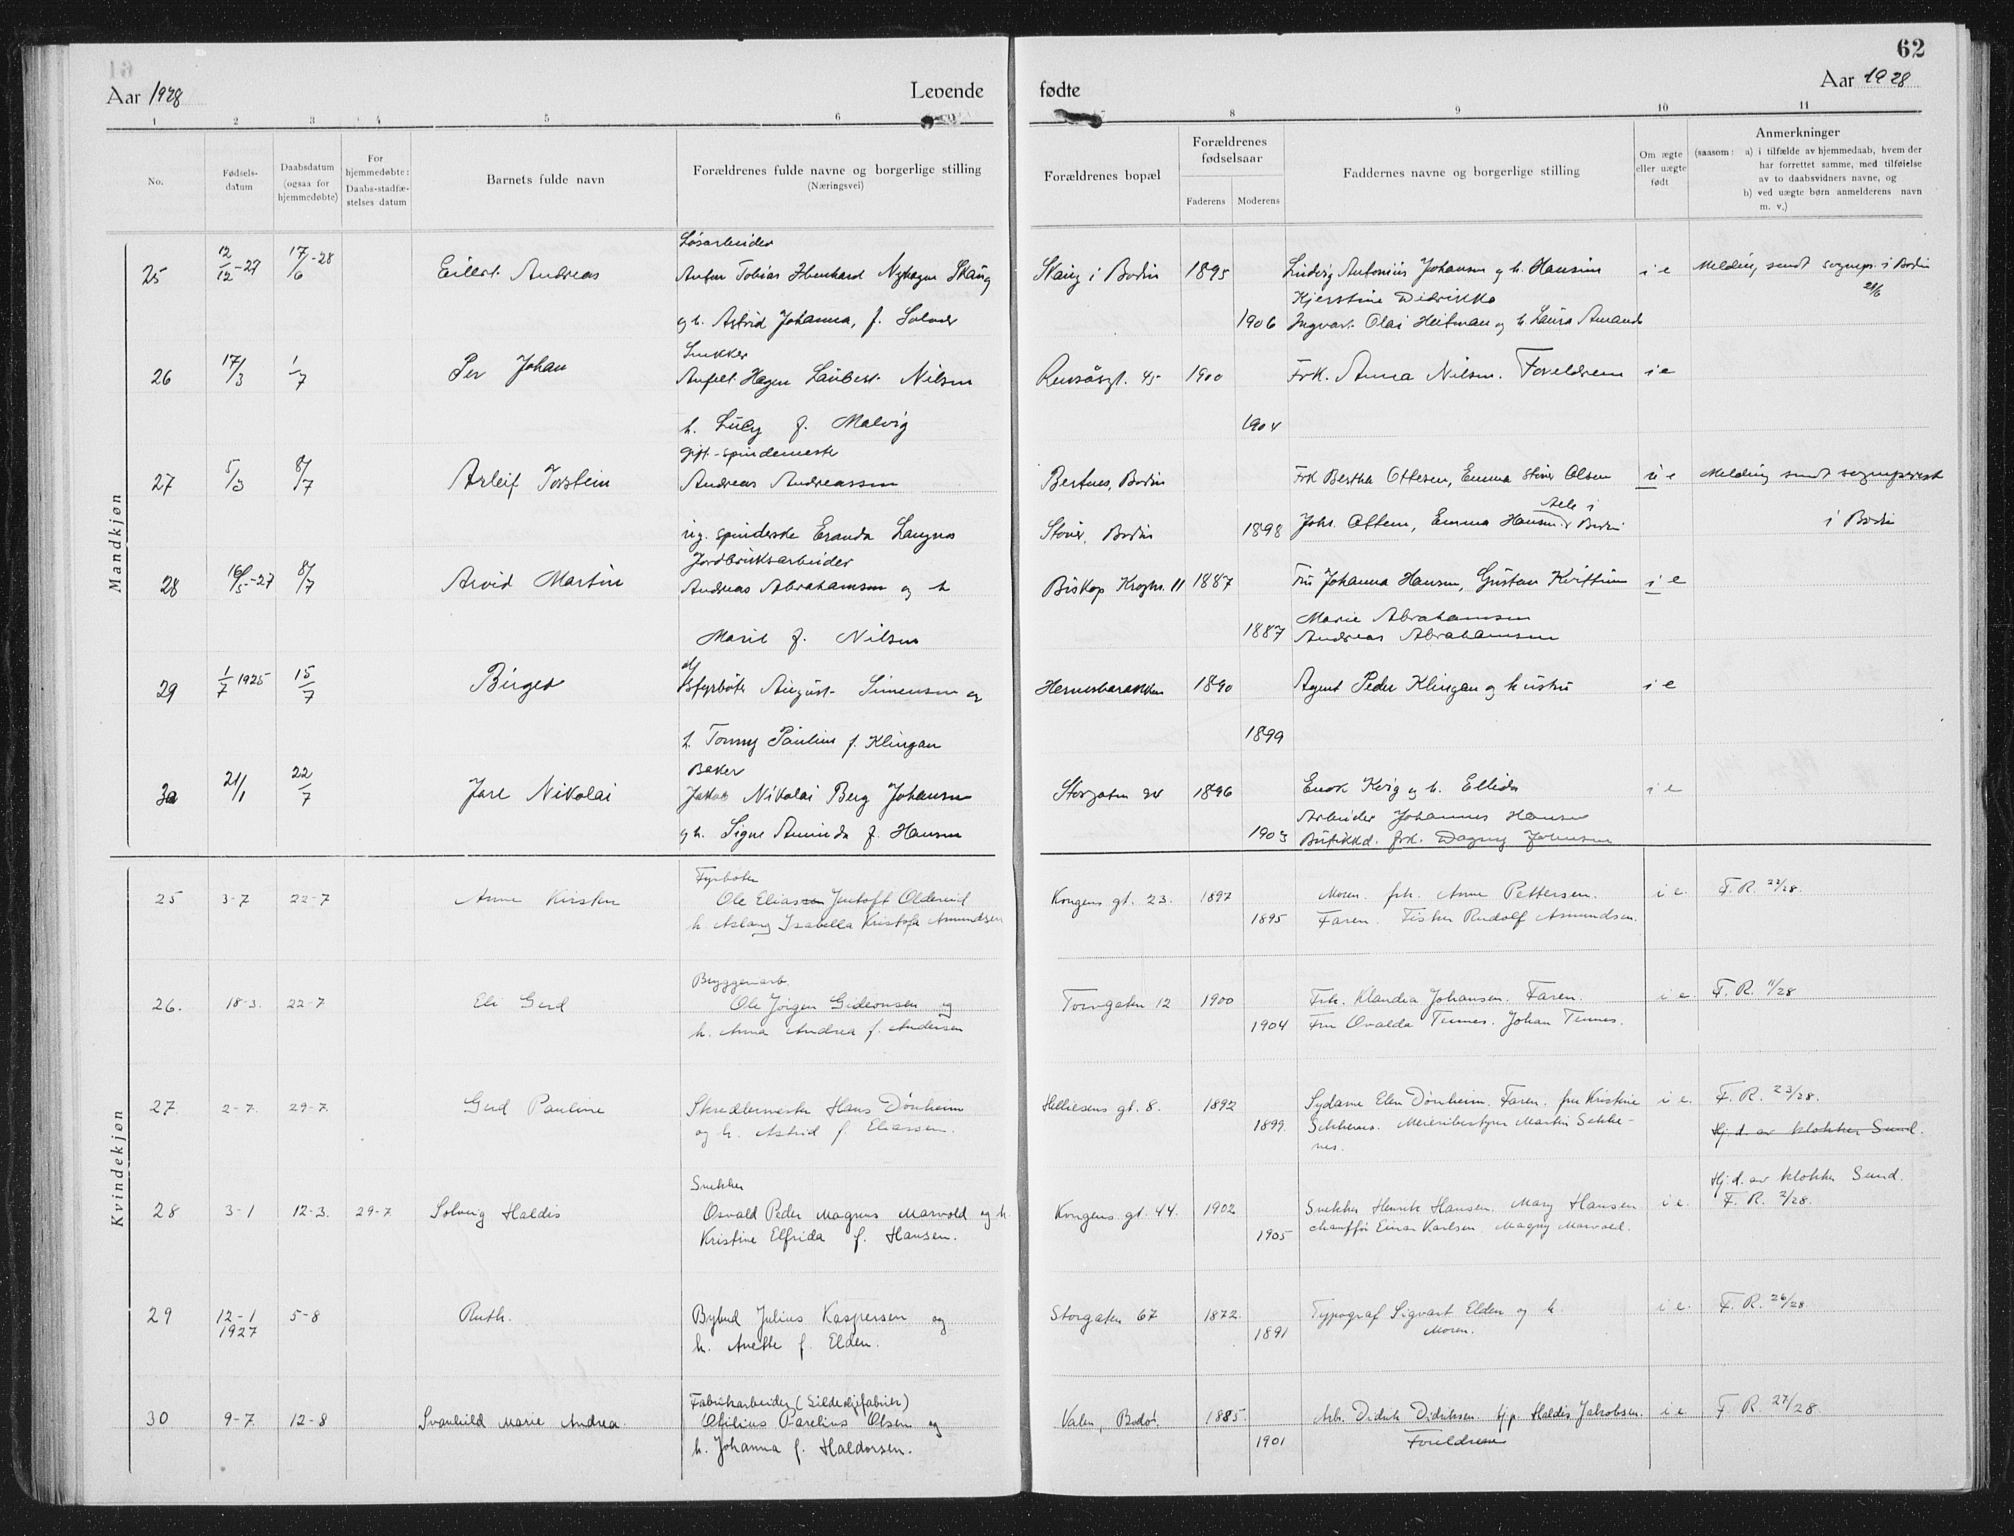 62
Aar 1928
Levende
fødte
Aar 1928
1 2 3 4 5 6 8 9 10 11
No.
Fødsels-
datum
Daabsdatum
(ogsaa for
hjemmedøbte)
For
hjemmedøbte:
Daabs-stadfæ-
stelses datum
Barnets fulde navn
Forældrenes fulde navne og borgerlige stilling
(Næringsvei)
Forældrenes bopæl
Forældrenes
fødselsaar
Faderens Moderens
Faddernes navne og borgerlige stilling
Om ægte
eller uægte
født
Anmerkninger
(saasom: a) i tilfælde av hjemmedaab, hvem der
har forrettet samme, med tilføielse
av to daabsvidners navne, og
b) ved uægte børn anmelderens navn
m. v.)
Mandkjøn
Løsarbeider
25 12/12-27 17/6-28 Eilert Andreas Anton Tobias Skaug i Bodin 1895 Ludvig Antonius Johansen og h. Hansine i e Melding sendt sognepr. i Bodin
21/6
og h. Astrid Johanna, f. 1906 Ingvart Olai Heitman og h. Laura Amanda
Snekker
26 17/3 1/7 Per Johan Hagen Laubert Nilsen 45 1900 Frk. Anna Nilsen. Foreldrene i e
h. Lucy f. Malvig 1904
gift - spindemester
27 5/3 8/7 Arleif Torstein Andreas Andreassen Bertnes, Bodin Frk Bertha Ottesen, Emma Støver Olsen u e Melding sendt sogneprest
ug. spinderske Støver, Bodin 1898 Johs. Ottesen, Emma Hansen i Bodin
Jordbruksarbeider
28 16/5-27 8/7 Arvid Martin Andreas Abrahamsen og h Biskop Kroghs. 11 1887 Fru Johanna Hansen, Gustav i e
Marit f. Nilsen 1887 Marie Abrahamsen
Andreas Abrahamsen
29 1/7 1925 15/7 Birger Fyrbøter August Simensen og Hernesbarakken 1890 Agent Peder Klingan og hustru i e
h. Tonny Pauline f. Klingan 1899
Baker
30 21/1 22/7 Jare Nikolai Jakob Nikolai Berg Johansen Storgaten 1896 Enok Kvig og h. Ellida i e
og h. Signe Aminda f. Hansen 1903 Arbeider Johannes Hansen
Butikkd. frk. Dagny Johansen
Kvindekjøn
Fyrbøter
25 3-7 22-7 Anne Kirsten Ole Elias Jentoft Oldervik Kongens gt. 23. 1897 Moren. frk. Anne Pettersen. i e. F. R. 22/28.
h. Aslaug Isabella Kristofa Amundsen 1895 Faren. Fisker Rudolf Asmundsen.
Bryggearb.
26. 18-3. 22-7 Eli Gerd Ole Jørgen Gideonsen og Torvgaten 12 1900 Frk. Klaudia Johansen. Faren. i e F. R. 11/28
h. Anna Andrea f. Andersen 1904 Fru Ovalda Tennes. Johan Tennes.
27 2-7. 29-7. Gerd Pauline Skredlermester Hans Dønheim Helliesens gt. 8. 1892 Sydame Elen Dønheim. Faren. fru Kristine i e. F. R. 23/28.
og h. Astrid f. Eliassen. 1899. Meieribestyrer Martin Sekke-
nes. Hj. d. av klokker Sund.
Snekker
28 3-1 12-3. 29-7 Solveig Haldis Osvald Peder Magnus Marvold og h. Kongens gt. 44. 1902 Snekker Henrik Hansen. Mary Hansen i e. Hj. d. av klokker Sund.
F. R. 2/28.
Kristine Elfrida f. Hansen. 1905 chauffør Einar Karlsen. Magny Marvold.
29 12-1 1927 5-8 Ruth. Bybud Julius Kaspersen og Storgaten 67 1872. Typograf Sigvart Elden og h. i e. F. R. 26/28
h. Anette f. Elden. 1891 Moren.
Fabrikarbeider (Sildoljefabrik)
30 9-7. 12-8 Svanhild Marie Andrea. Otilius Parelius Olsen og Valen, Bodø. 1885. Arb. Didrik Didriksen. Hj. Haldis Jakobsen. i e. F. R. 27/28
h. Johanna f. Haldorsen. 1901 Foreldrene